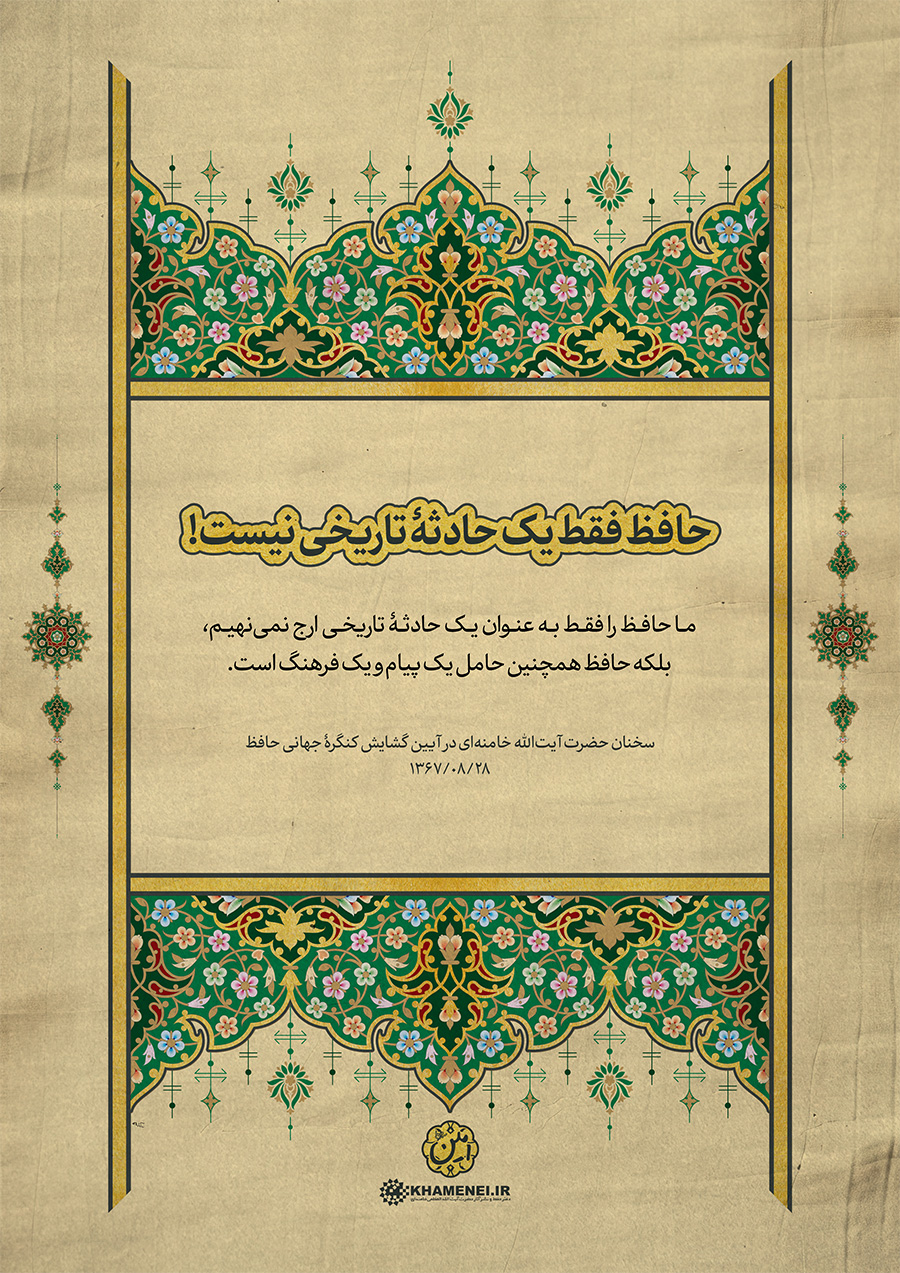 حافظ فقط یک حادثهٔ تاریخی نیست!
ما حافظ را فقط به عنوان یک حادثهٔ تاریخی ارج نمی‌نهیم،
بلکه حافظ همچنین حامل یک پیام و یک فرهنگ است.
سخنان حضرت آیت‌الله خامنه‌ای در آیین گشایش کنگرهٔ جهانی حافظ
۱۳۶۷/۰۸/۲۸
KHAMENEI.IR
دفتر حفظ و نشر آثار حضرت آیت‌الله‌العظمی خامنه‌ای